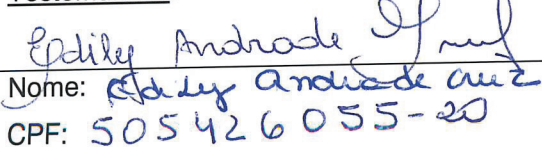 Edily Andrade
Nome: Edily Andrade Cruz
CPF: 505426055-20